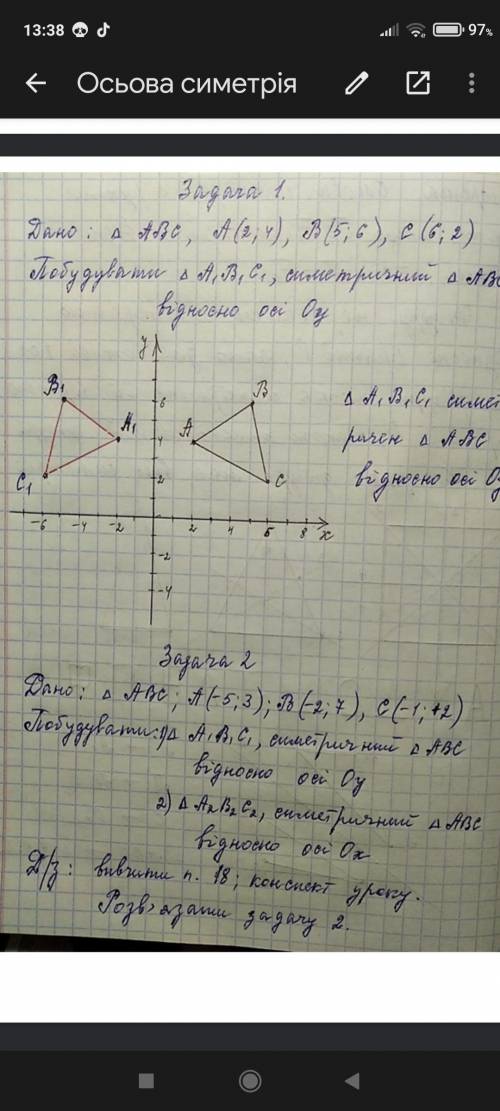 13:38 97%
Осьова симетрія
Задача 1.
Дано: △ ABC, A(2;4), B(5;6), C(6;2)
Побудувати △ A₁B₁C₁, симетричний △ ABC
відносно осі Oy
y
B₁ 6 B
A₁ 4 A
C₁ 2 C
-6 -4 -2 2 4 6 8 x
-2
-4
△ A₁B₁C₁ симет
ричен △ ABC
відносно осі Oy
Задача 2
Дано: △ ABC; A(-5;3); B(-2;7), C(-1;+2)
Побудувати: 1) △ A₁B₁C₁, симетричний △ ABC
відносно осі Oy
2) △ A₂B₂C₂, симетричний △ ABC
відносно осі Ox
Д/з: вивчити п. 18; конспект уроку.
Розв'язати задачу 2.